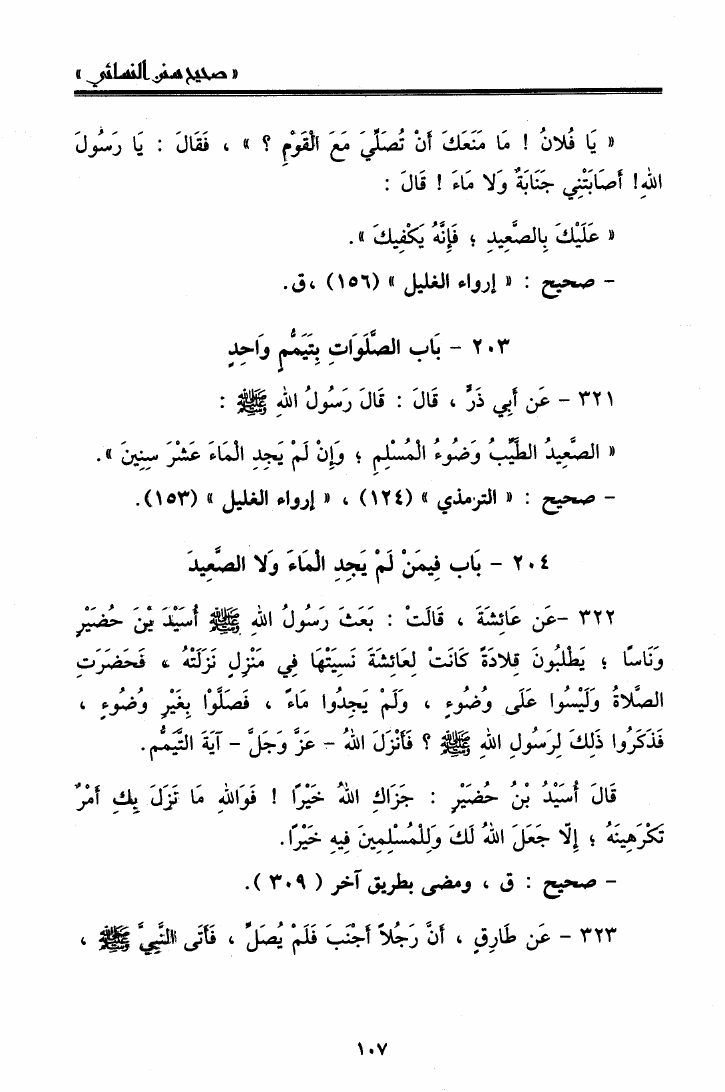 « صحيح سنن النسائي »
« يَا فُلانُ ! مَا مَنَعَكَ أَنْ تُصَلِّيَ مَعَ الْقَوْمِ ؟ » ، فَقَالَ : يَا رَسُولَ
اللهِ! أَصَابَتْنِي جَنَابَةٌ وَلَا مَاءَ ! قَالَ :
« عَلَيْكَ بِالصَّعِيدِ ؛ فَإِنَّهُ يَكْفِيكَ ».
– صحيح : « إرواء الغليل » (١٥٦) ،ق.
٢٠٣ – بَاب الصَّلَوَاتِ بِتَيَمُّمٍ وَاحِدٍ
٣٢١ – عَن أَبِي ذَرٍّ ، قَالَ : قَالَ رَسُولُ اللهِ ﷺ :
« الصَّعِيدُ الطَّيِّبُ وَضُوءُ الْمُسْلِمِ ؛ وَإِنْ لَمْ يَجِدِ الْمَاءَ عَشْرَ سِنِينَ ».
– صحيح : « الترمذي » (١٢٤) ، « إرواء الغليل » (١٥٣).
٢٠٤ – بَاب فِيمَنْ لَمْ يَجِدِ الْمَاءَ وَلَا الصَّعِيدَ
٣٢٢ –عَن عَائِشَةَ ، قَالَتْ : بَعَثَ رَسُولُ اللهِ ﷺ أُسَيْدَ بْنَ حُضَيْرٍ
وَنَاسًا ؛ يَطْلُبُونَ قِلادَةً كَانَتْ لِعَائِشَةَ نَسِيَتْهَا فِي مَنْزِلٍ نَزَلَتْهُ ، فَحَضَرَتِ
الصَّلاةُ وَلَيْسُوا عَلَى وُضُوءٍ ، وَلَمْ يَجِدُوا مَاءً ، فَصَلَّوْا بِغَيْرِ وُضُوءٍ ،
فَذَكَرُوا ذَلِكَ لِرَسُولِ اللهِ ﷺ ؟ فَأَنْزَلَ اللهُ – عَزَّ وَجَلَّ – آيَةَ التَّيَمُّمِ.
قَالَ أُسَيْدُ بْنُ حُضَيْرٍ : جَزَاكِ اللهُ خَيْرًا ! فَوَاللهِ مَا نَزَلَ بِكِ أَمْرٌ
تَكْرَهِينَهُ ؛ إِلَّا جَعَلَ اللهُ لَكِ وَلِلْمُسْلِمِينَ فِيهِ خَيْرًا.
– صحيح : ق ، ومضى بطريق آخر ( ٣٠٩ ).
٣٢٣ – عَن طَارِقٍ ، أَنَّ رَجُلاً أَجْنَبَ فَلَمْ يُصَلِّ ، فَأَتَى النَّبِيَّ ﷺ ،
١٠٧